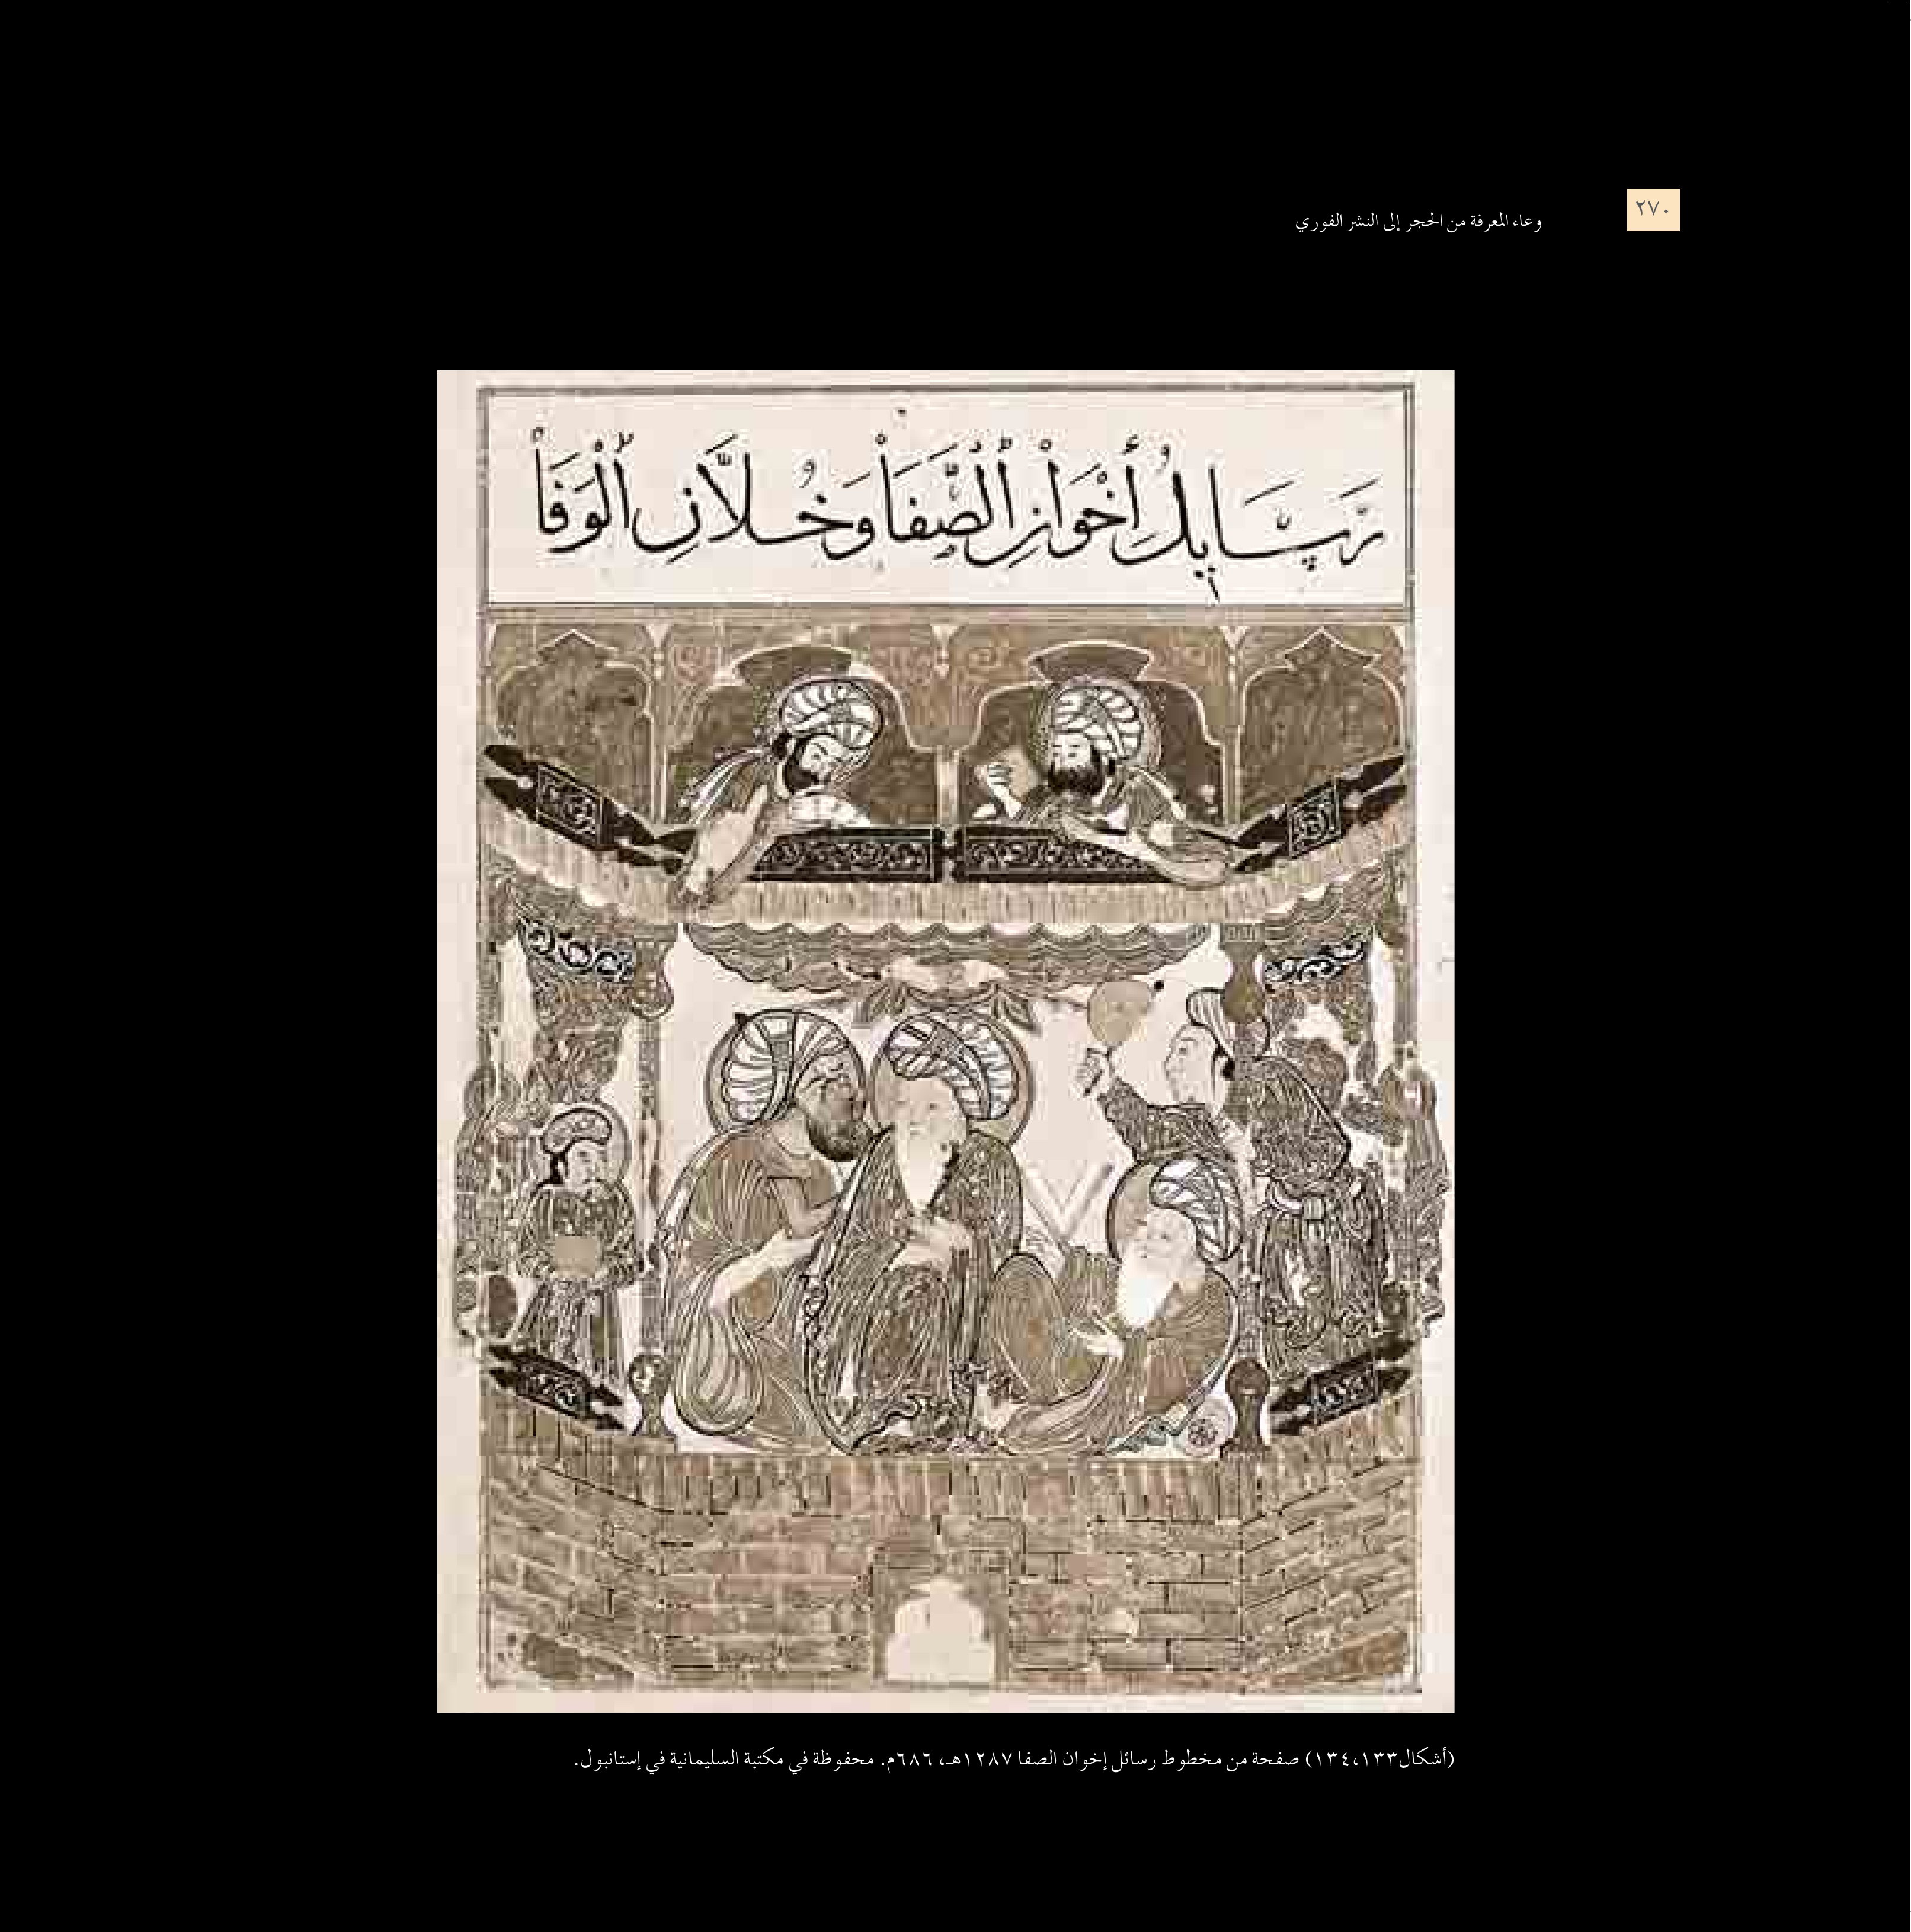 ٢٧٠
وعاء المعرفة من الحجر إلى النشر الفوري
رَسَايِلُ إِخْوَانِ الصَّفَا وَخُلَّانِ الْوَفَا
(أشكال١٣٤،١٣٣) صفحة من مخطوط رسائل إخوان الصفا ١٢٨٧هـ، ٦٨٦م. محفوظة في مكتبة السليمانية في إستانبول.